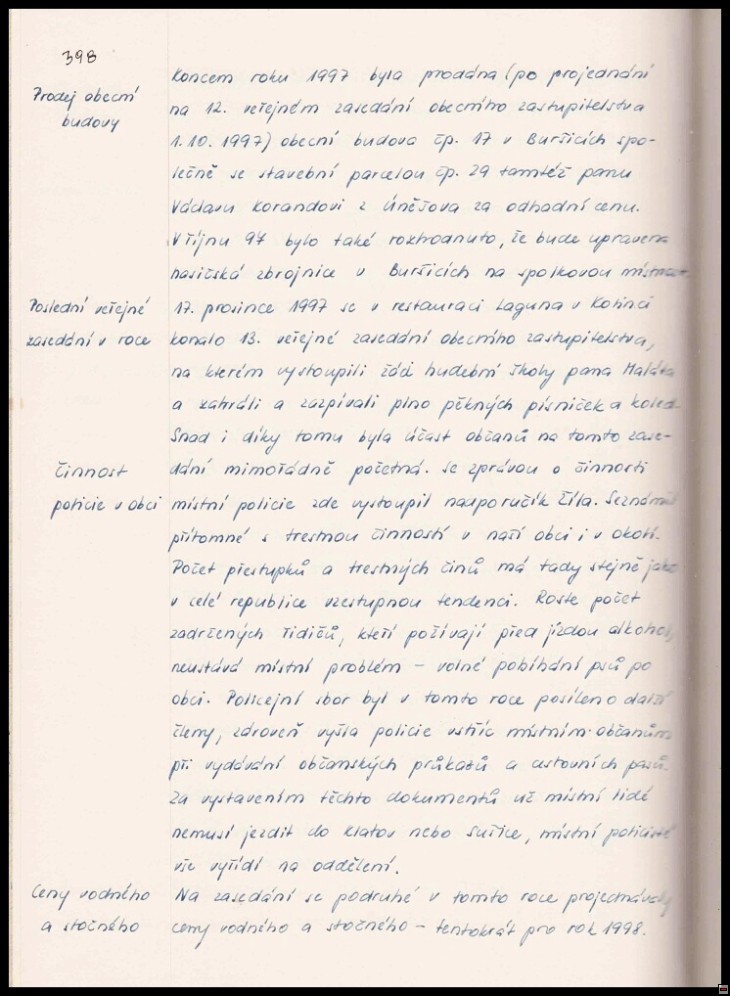 398
Prodej obecní
budovy
Koncem roku 1997 byla prodána (po projednání
na 12. veřejném zasedání obecního zastupitelstva
1.10. 1997) obecní budova čp. 17 v Buršicích spo-
lečně se stavební parcelou čp. 29 tamtéž panu
Václavu Korandovi z Úněšova za odhadní cenu.
V říjnu 97 bylo také rozhodnuto, že bude upravena
hasičská zbrojnice v Buršicích na spolkovou místnost.
Poslední veřejné
zasedání v roce
17. prosince 1997 se v restauraci Laguna v Kolinci
konalo 13. veřejné zasedání obecního zastupitelstva,
na kterém vystoupili žáci hudební školy pana Maláta
a zahráli a zazpívali plno pěkných písniček a koled.
Snad i díky tomu byla účast občanů na tomto zase-
dání mimořádně početná. Se zprávou o činnosti
Činnost
policie v obci
místní policie zde vystoupil nadporučík Číla. Seznámil
přítomné s trestnou činností v naší obci i v okolí.
Počet přestupků a trestných činů má tady stejně jako
v celé republice vzestupnou tendenci. Roste počet
zadržených řidičů, kteří požívají před jízdou alkohol,
neustává místní problém – volné pobíhání psů po
obci. Policejní sbor byl v tomto roce posílen o další
členy, zároveň vyšla policie vstříc místním občanům
při vydávání občanských průkazů a cestovních pasů.
Za vystavením těchto dokumentů už místní lidé
nemusí jezdit do Klatov nebo Sušice, místní policisté
vše vyřídí na oddělení.
Ceny vodného
a stočného
Na zasedání se podruhé v tomto roce projednávaly
ceny vodného a stočného – tentokrát pro rok 1998.